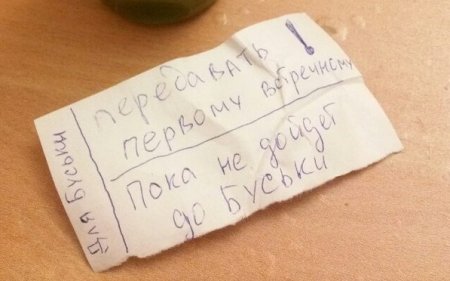 Для Буськи
передавать !
первому встречному
Пока не дойдет
до Буськи